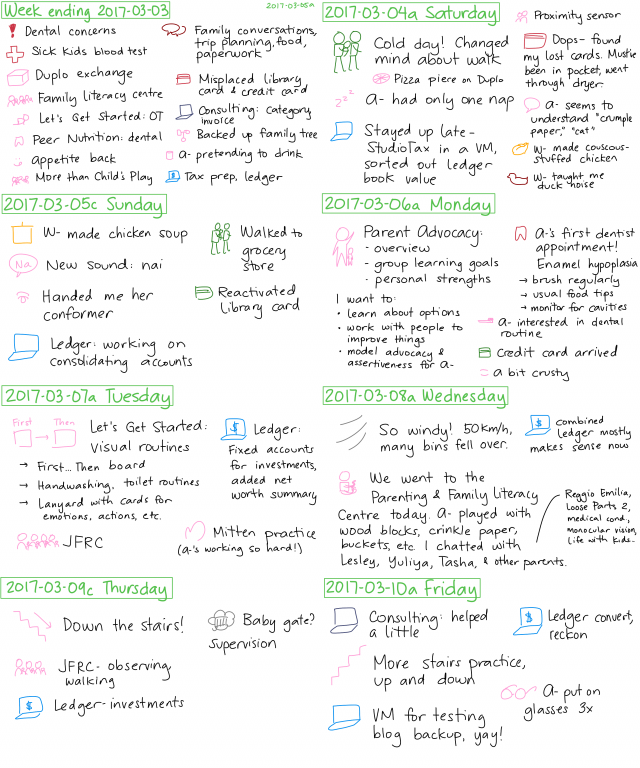 Week ending 2017-03-03
2017-03-05A
Dental concerns
Sick Kids blood test
Duplo exchange
Family literacy centre
Let's Get Started: OT
Peer Nutrition: dental
appetite back
More than Child's Play
Family conversations,
trip planning, food,
paperwork
Misplaced library
card & credit card
Consulting: category,
invoice
Backed up family tree
A- pretending to drink
Tax prep, ledger
2017-03-04a Saturday
Cold day! Changed
mind about walk
Pizza piece on Duplo
zzz
A- had only one nap
Stayed up late-
StudioTax in a VM,
sorted out ledger
book value
Proximity sensor
Oops- found
my lost cards. Must've
been in pocket, went
through dryer.
A- seems to
understand "crumple
paper," "cat"
W- made couscous-
stuffed chicken
W- taught me
duck noise
2017-03-05c Sunday
W- made chicken soup
Na
New sound: nai
Handed me her
conformer
Ledger: working on
consolidating accounts
Walked to
grocery
store
Reactivated
library card
2017-03-06a Monday
Parent Advocacy:
- overview
- group learning goals
- personal strengths
I want to:
• learn about options
• work with people to
improve things
• model advocacy &
assertiveness for A-
A-'s first dentist
appointment!
Enamel hypoplasia
→ brush regularly
→ usual food tips
→ monitor for cavities
A- interested in dental
routine
Credit card arrived
A bit crusty
2017-03-07a Tuesday
First Then
Let's Get Started:
Visual routines
→ First... Then board
→ Handwashing, toilet routines
→ Lanyard with cards for
emotions, actions, etc.
JFRC
$
Ledger:
Fixed accounts
for investments,
added net
worth summary
Mitten practice
(A-'s working so hard!)
2017-03-08a Wednesday
So windy! 50km/h,
many bins fell over.
$
combined
ledger mostly
makes sense now
We went to the
Parenting & Family Literacy
Centre today. A- played with
wood blocks, crinkle paper,
buckets, etc. I chatted with
Lesley, Yuliya, Tasha, & other parents.
Reggio Emilia,
Loose Parts 2,
medical cond.,
monocular vision,
life with kids...
2017-03-09c Thursday
Down the stairs!
JFRC- observing,
walking
$
Ledger- investments
Baby gate?
Supervision
2017-03-10a Friday
Consulting: helped
a little
More stairs practice,
up and down
VM for testing
blog backup, yay!
$
Ledger convert,
reckon
A- put on
glasses 3x